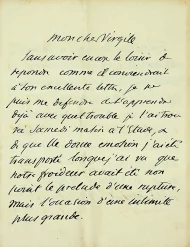 mon cher Virgile
Sans avoir encore le loisir de
repondre comme il conviendrait
à ton excellente lettre, je ne
puis me defendre de t'apprendre
dejà avec quel trouble je l'ai trou
vé Samedi matin à l'Etude, &
de quelle douce emotion j'ai été
transporté lorsque j'ai vu que
notre froideur avait été non
point le prelude d'une rupture,
mais l'occasion d'une intimité
plus grande.